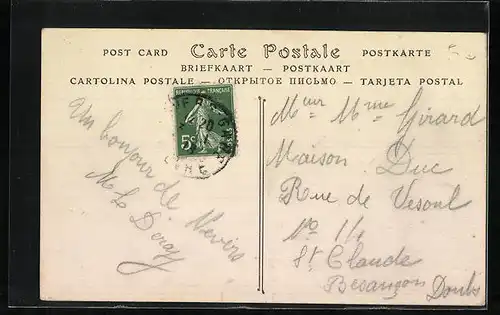 POST CARD Carte Postale POSTKARTE
BRIEFKAART — POSTKAART
CARTOLINA POSTALE — ОТКРЫТОЕ ПИСЬМО — TARJETA POSTAL
REPUBLIQUE FRANÇAISE
5c
POSTES
un bonjour de Nevers
M L
Mr Mme Girard
Maison Duc
Rue de Vesoul
No 14
St Claude
Besançon Doubs